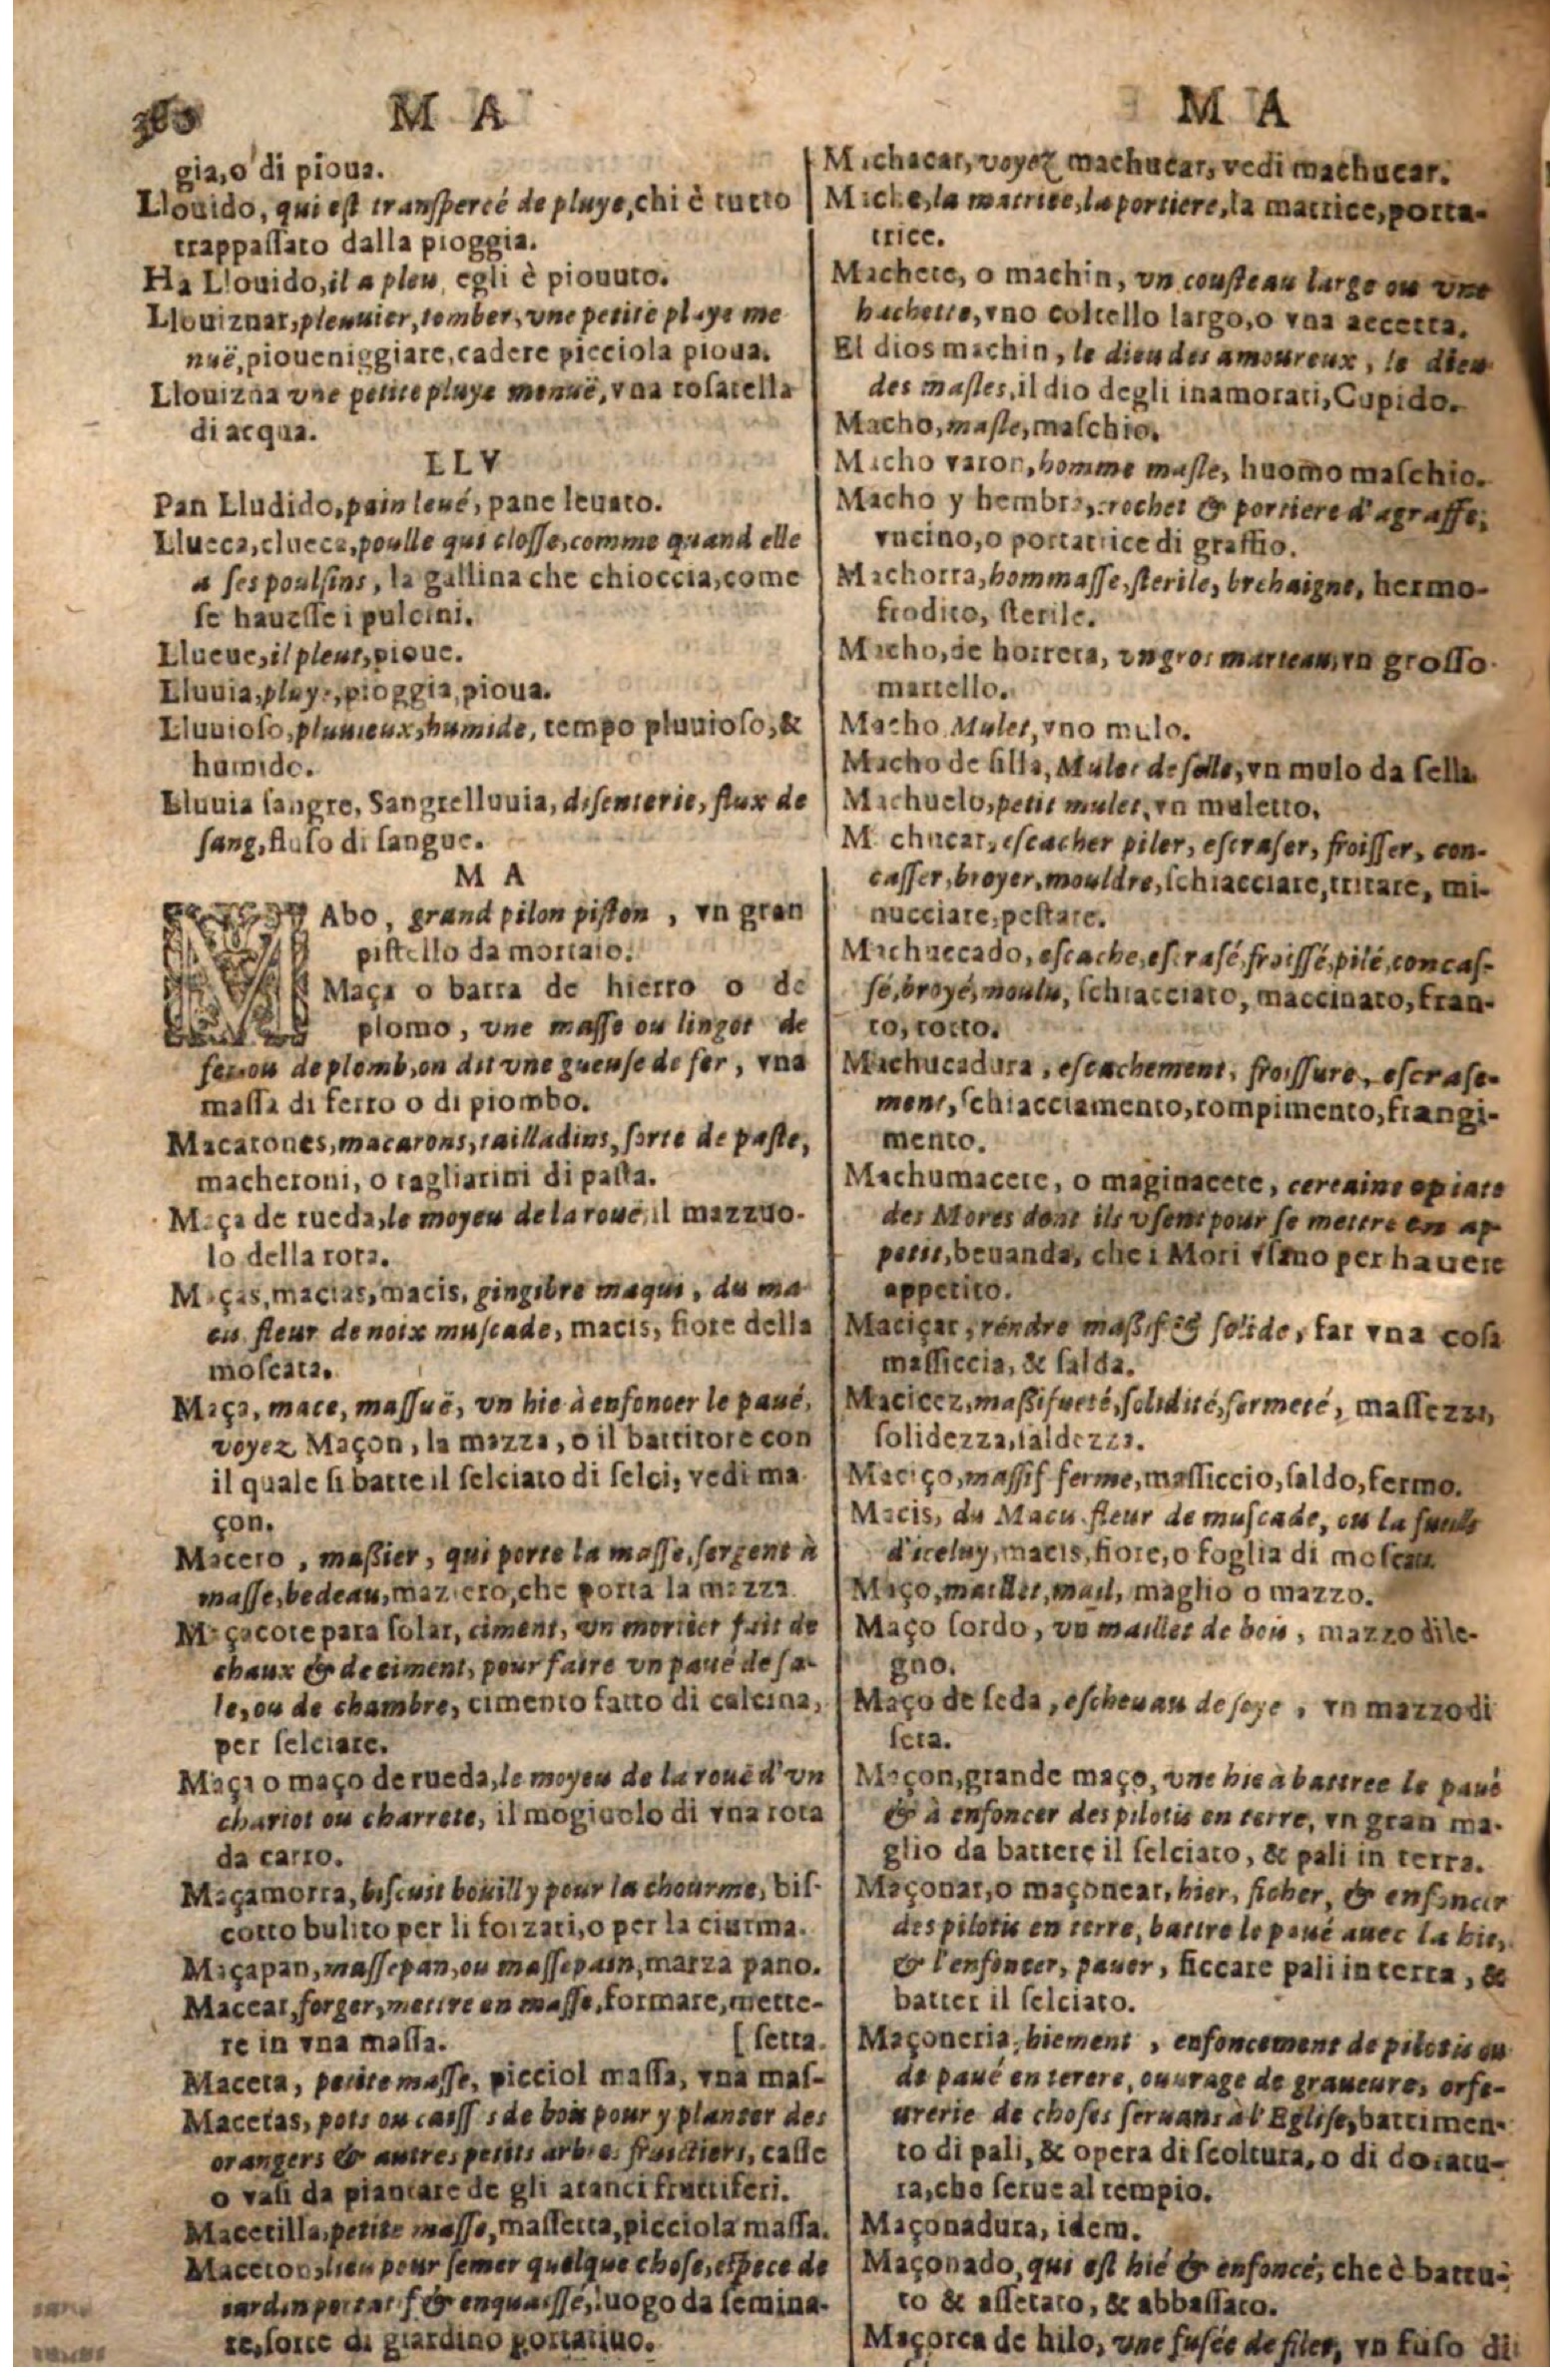 360 M A
gia,o di pioua.
Llouido, qui est transpercé de pluye,chi è tutto
trappassato dalla pioggia.
Ha Llouido,il a pleu, egli è piouuto.
Llouiznar,pleuuier,tomber,vne petite pluye me
nuë,pioueniggiare,cadere picciola pioua.
Llouizna vne petite pluye menuë,vna rosatella
di acqua.
LLV
Pan Lludido,pain leué, pane leuato.
Llueca,clueca,poulle qui closse,comme quand elle
a ses poulsins, la gallina che chioccia,come
se hauesse i pulcini.
Llueue,il pleut,pioue.
Lluuia,pluye,pioggia,pioua.
Lluuioso,pluuieux,humide, tempo pluuioso,&
humido.
Lluuia sangre, Sangrelluuia, disenterie, flux de
sang,fluso di sangue.
M A
MAbo, grand pilon piston, vn gran
pistello da mortaio.
Maça o barra de hierro o de
plomo, vne masse ou lingot de
fer,ou de plomb,on dit vne gueuse de fer, vna
massa di ferro o di piombo.
Macarones,macarons,tailladins,sorte de paste,
macheroni, o tagliarini di pasta.
Maça de rueda,le moyeu de la rouë,il mazzuo-
lo della rota.
Maças,macias,macis, gingibre maqui, du ma
cu fleur de noix muscade, macis, fiore della
moscata.
Maça, mace, massuë, vn hie à enfoncer le paué,
voyez Maçon, la mazza, o il battitore con
il quale si batte il selciato di selci, vedi ma
çon.
Macero, massier, qui porte la masse,sergent à
masse,bedeau,maziero,che porta la mazza
Maçacote para solar, ciment, vn mortier fait de
chaux & de ciment, pour faire vn paué de sa-
le, ou de chambre, cimento fatto di calcina,
per selciare.
Maça o maço de rueda,le moyeu de la rouë d'vn
chariot ou charrete, il mogiuolo di vna rota
da carro.
Maçamorra,biscuit bouilly pour la chourme, bis-
cotto bulito per li forzati,o per la ciurma.
Maçapan,massepan,ou massepain,marza pano.
Macear,forger,mettre en masse,formare,mette-
re in vna massa. [setta.
Maceta, petite masse, picciol massa, vna mas-
Macetas, pots ou caisses de bois pour y planter des
orangers & autres petits arbres fruictiers, casse
o vasi da piantare de gli aranci fruttiferi.
Macetilla,petite masse,massetta,picciola massa.
Maceton,lieu pour semer quelque chose,espece de
iardin portatif & enquaissé,luogo da semina-
re,sorte di giardino portatiuo.
M A
Machacar,voyez machucar, vedi machucar.
Mache,la matrice,la portiere,la matrice,porta-
trice.
Machete, o machin, vn cousteau large ou vne
hachette,vno coltello largo,o vna accetta.
El dios machin, le dieu des amoureux, le dieu
des masles,il dio degli inamorati,Cupido.
Macho,masle,maschio.
Macho varon,homme masle, huomo maschio.
Macho y hembra,crochet & portiere d'agraffe,
vncino,o portatrice di graffio.
Machorra,hommasse,sterile, brehaigne, hermo-
frodito, sterile.
Macho,de horrera, vn gros marteau,vn grosso
martello.
Macho Mulet,vno mulo.
Macho de silla, Mulet de selle,vn mulo da sella
Machuelo,petit mulet,vn muletto.
Machucar,escacher piler, escraser, froisser, con-
casser,broyer,mouldre,schiacciare,tritare, mi-
nucciare,pestare.
Machuccado,escache,escrasé,froissé,pilé,concas-
sé,broyé,moulu, schiacciato, maccinato, fran-
to,rotto.
Machucadura, escachement, froissure, escrase-
ment,schiacciamento,rompimento,frangi-
mento.
Machumacete, o maginacete, certaine opiate
des Mores dont ils vsent pour se mettre en ap-
petit,beuanda, che i Mori vsano per hauere
appetito.
Maciçar, rendre massif & solide, far vna cosa
massiccia, & salda.
Macicez,massifueté,solidité,fermeté, massezza,
solidezza,saldezza.
Maciço,massif ferme,massiccio,saldo,fermo.
Macis, du Macu fleur de muscade, ou la fueille
d'iceluy,macis,fiore,o foglia di moscata.
Maço,maillet,mail, maglio o mazzo.
Maço sordo, vn maillet de bois, mazzo di le-
gno.
Maço de seda, escheuau de soye, vn mazzo di
seta.
Maçon,grande maço, vne hie à battree le paué
& à enfoncer des pilotis en terre, vn gran ma-
glio da battere il selciato, & pali in terra.
Maçonar,o maçonear, hier, ficher, & enfoncer
des pilotis en terre, battre le paué auec la hie,
& l'enfoncer, pauer, ficcare pali in terra, &
batter il selciato.
Maçoneria,hiement, enfoncement de pilotis ou
de paué en terere, ouurage de graueure, orfe-
urerie de choses seruans à l'Eglise,battimen-
to di pali, & opera di scoltura, o di doratu-
ra,che serue al tempio.
Maçonadura, idem.
Maçonado, qui est hié & enfoncé, che è battu-
to & assetato, & abbassato.
Maçorca de hilo, vne fusée de filet, vn fuso di